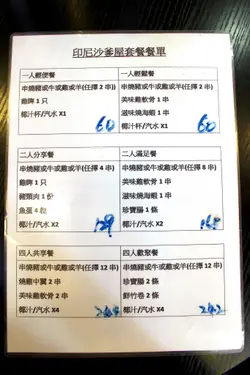 印尼沙爹屋套餐餐單
一人輕便餐
串燒豬或牛或雞或羊(任擇 2 串))
雞髀 1 只
椰汁杯/汽水 X1
60
一人輕鬆餐
串燒豬或牛或雞或羊(任擇 2 串)
美味雞軟骨 1 串
滋味燒海蝦 1 串
椰汁/汽水 X1
60
二人分享餐
串燒豬或牛或雞或羊(任擇 4 串)
雞髀 1 只
豬頸肉 1 份
魚蛋 4 粒
椰汁/汽水 X2
129
二人滿足餐
串燒豬或牛或雞或羊(任擇 8 串)
美味雞軟骨 1 串
滋味燒海蝦 1 串
珍寶腸 1 條
椰汁/汽水 X2
四人共享餐
串燒豬或牛或雞或羊(任擇 12 串)
燒雞中翼 2 串
美味雞軟骨 2 串
椰汁/汽水 X4
四人歡聚餐
串燒豬或牛或雞或羊(任擇 12 串)
珍寶腸 2 條
鮮竹卷 2 串
椰汁/汽水 X4
242